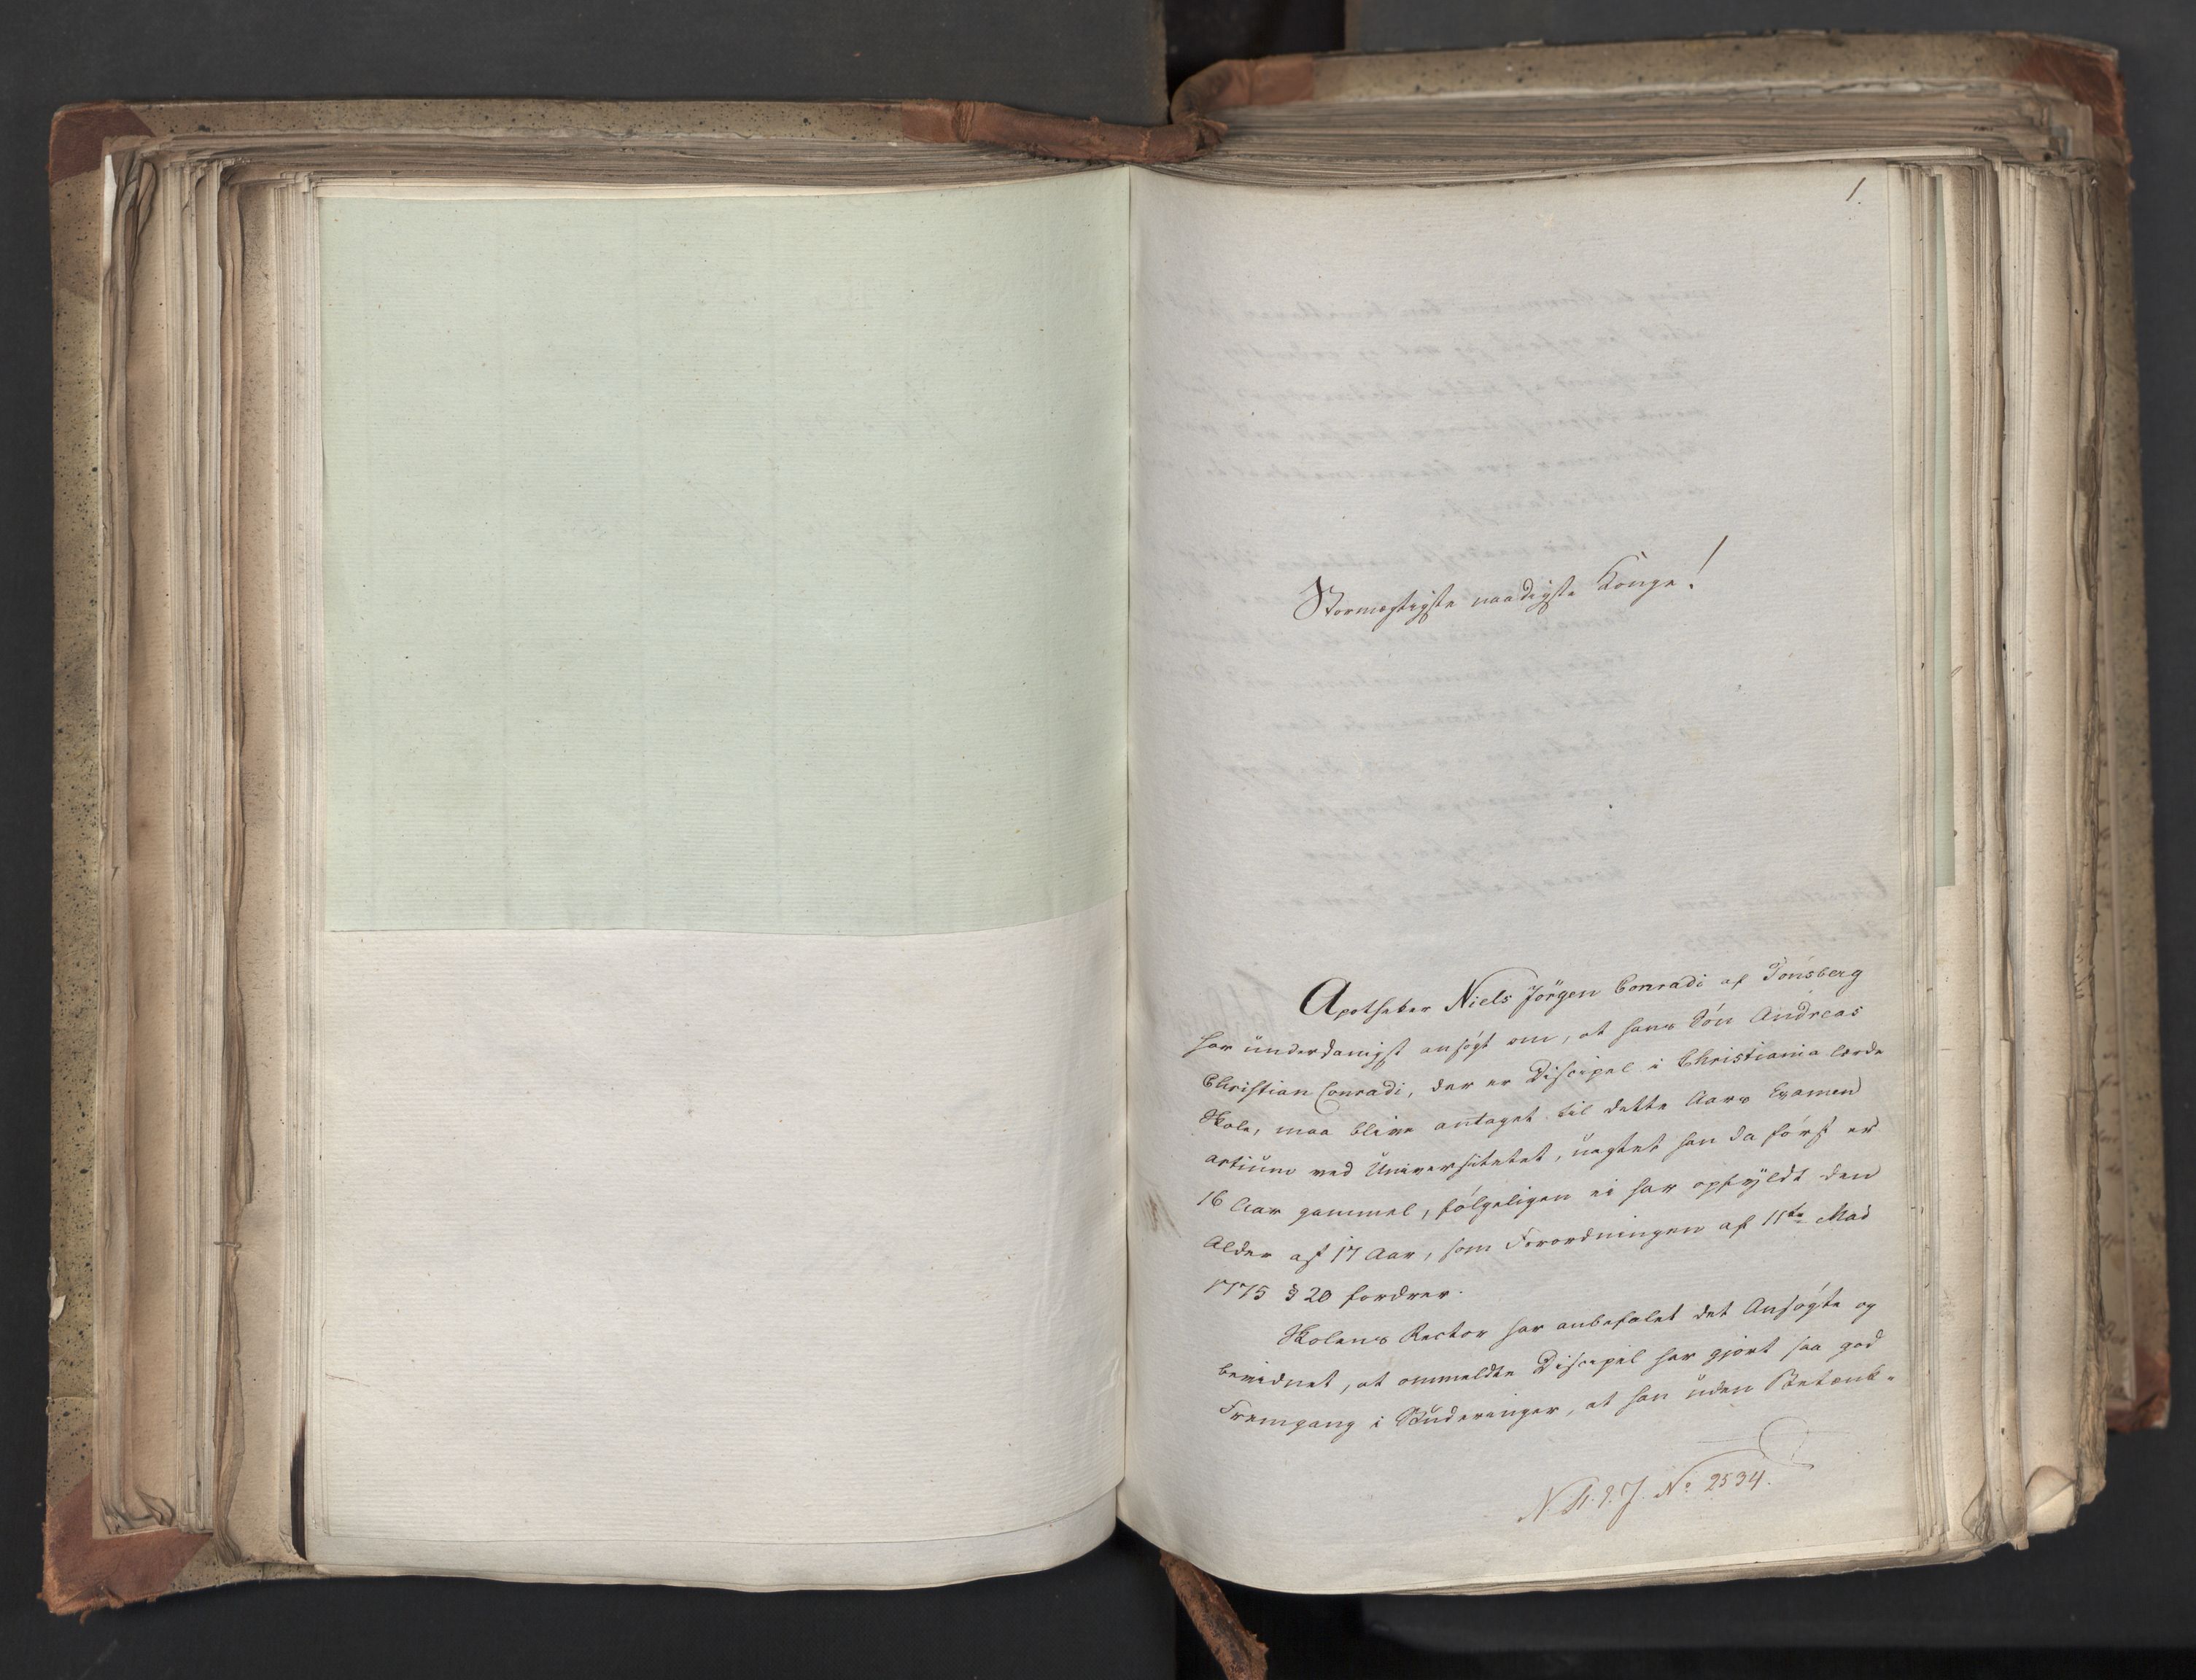 1.
Stormægtigste naadigste Konge!
Apotheker Niels Jörgen Conradi af Tönsberg
har underdanigst ansøgt om, at hans Søn Andreas
Christian Conradi, der er Discipel i Christiania lærde
Skole, maa blive antaget til dette Aars Examen
artium ved Universitetet, uagtet han da først er
16 Aar gammel, følgeligen ei har opfyldt den
Alder af 17 Aar, som Forordningen af 11te Mai
1775 § 20 fordrer.
Skolens Rector har anbefalet det Ansøgte og
bevidnet, at ommeldte Discipel har gjort saa god
Fremgang i Studeringer, at han uden Betænk-
No 2534.